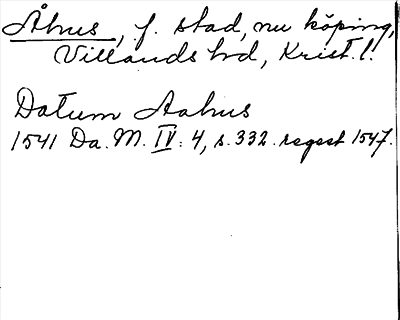 Åhus, f. stad, nu köping,
Villands hd, Krist. l.
Datum Aahus
1541 Da. M. IV: 4, s. 332. regest 1547.